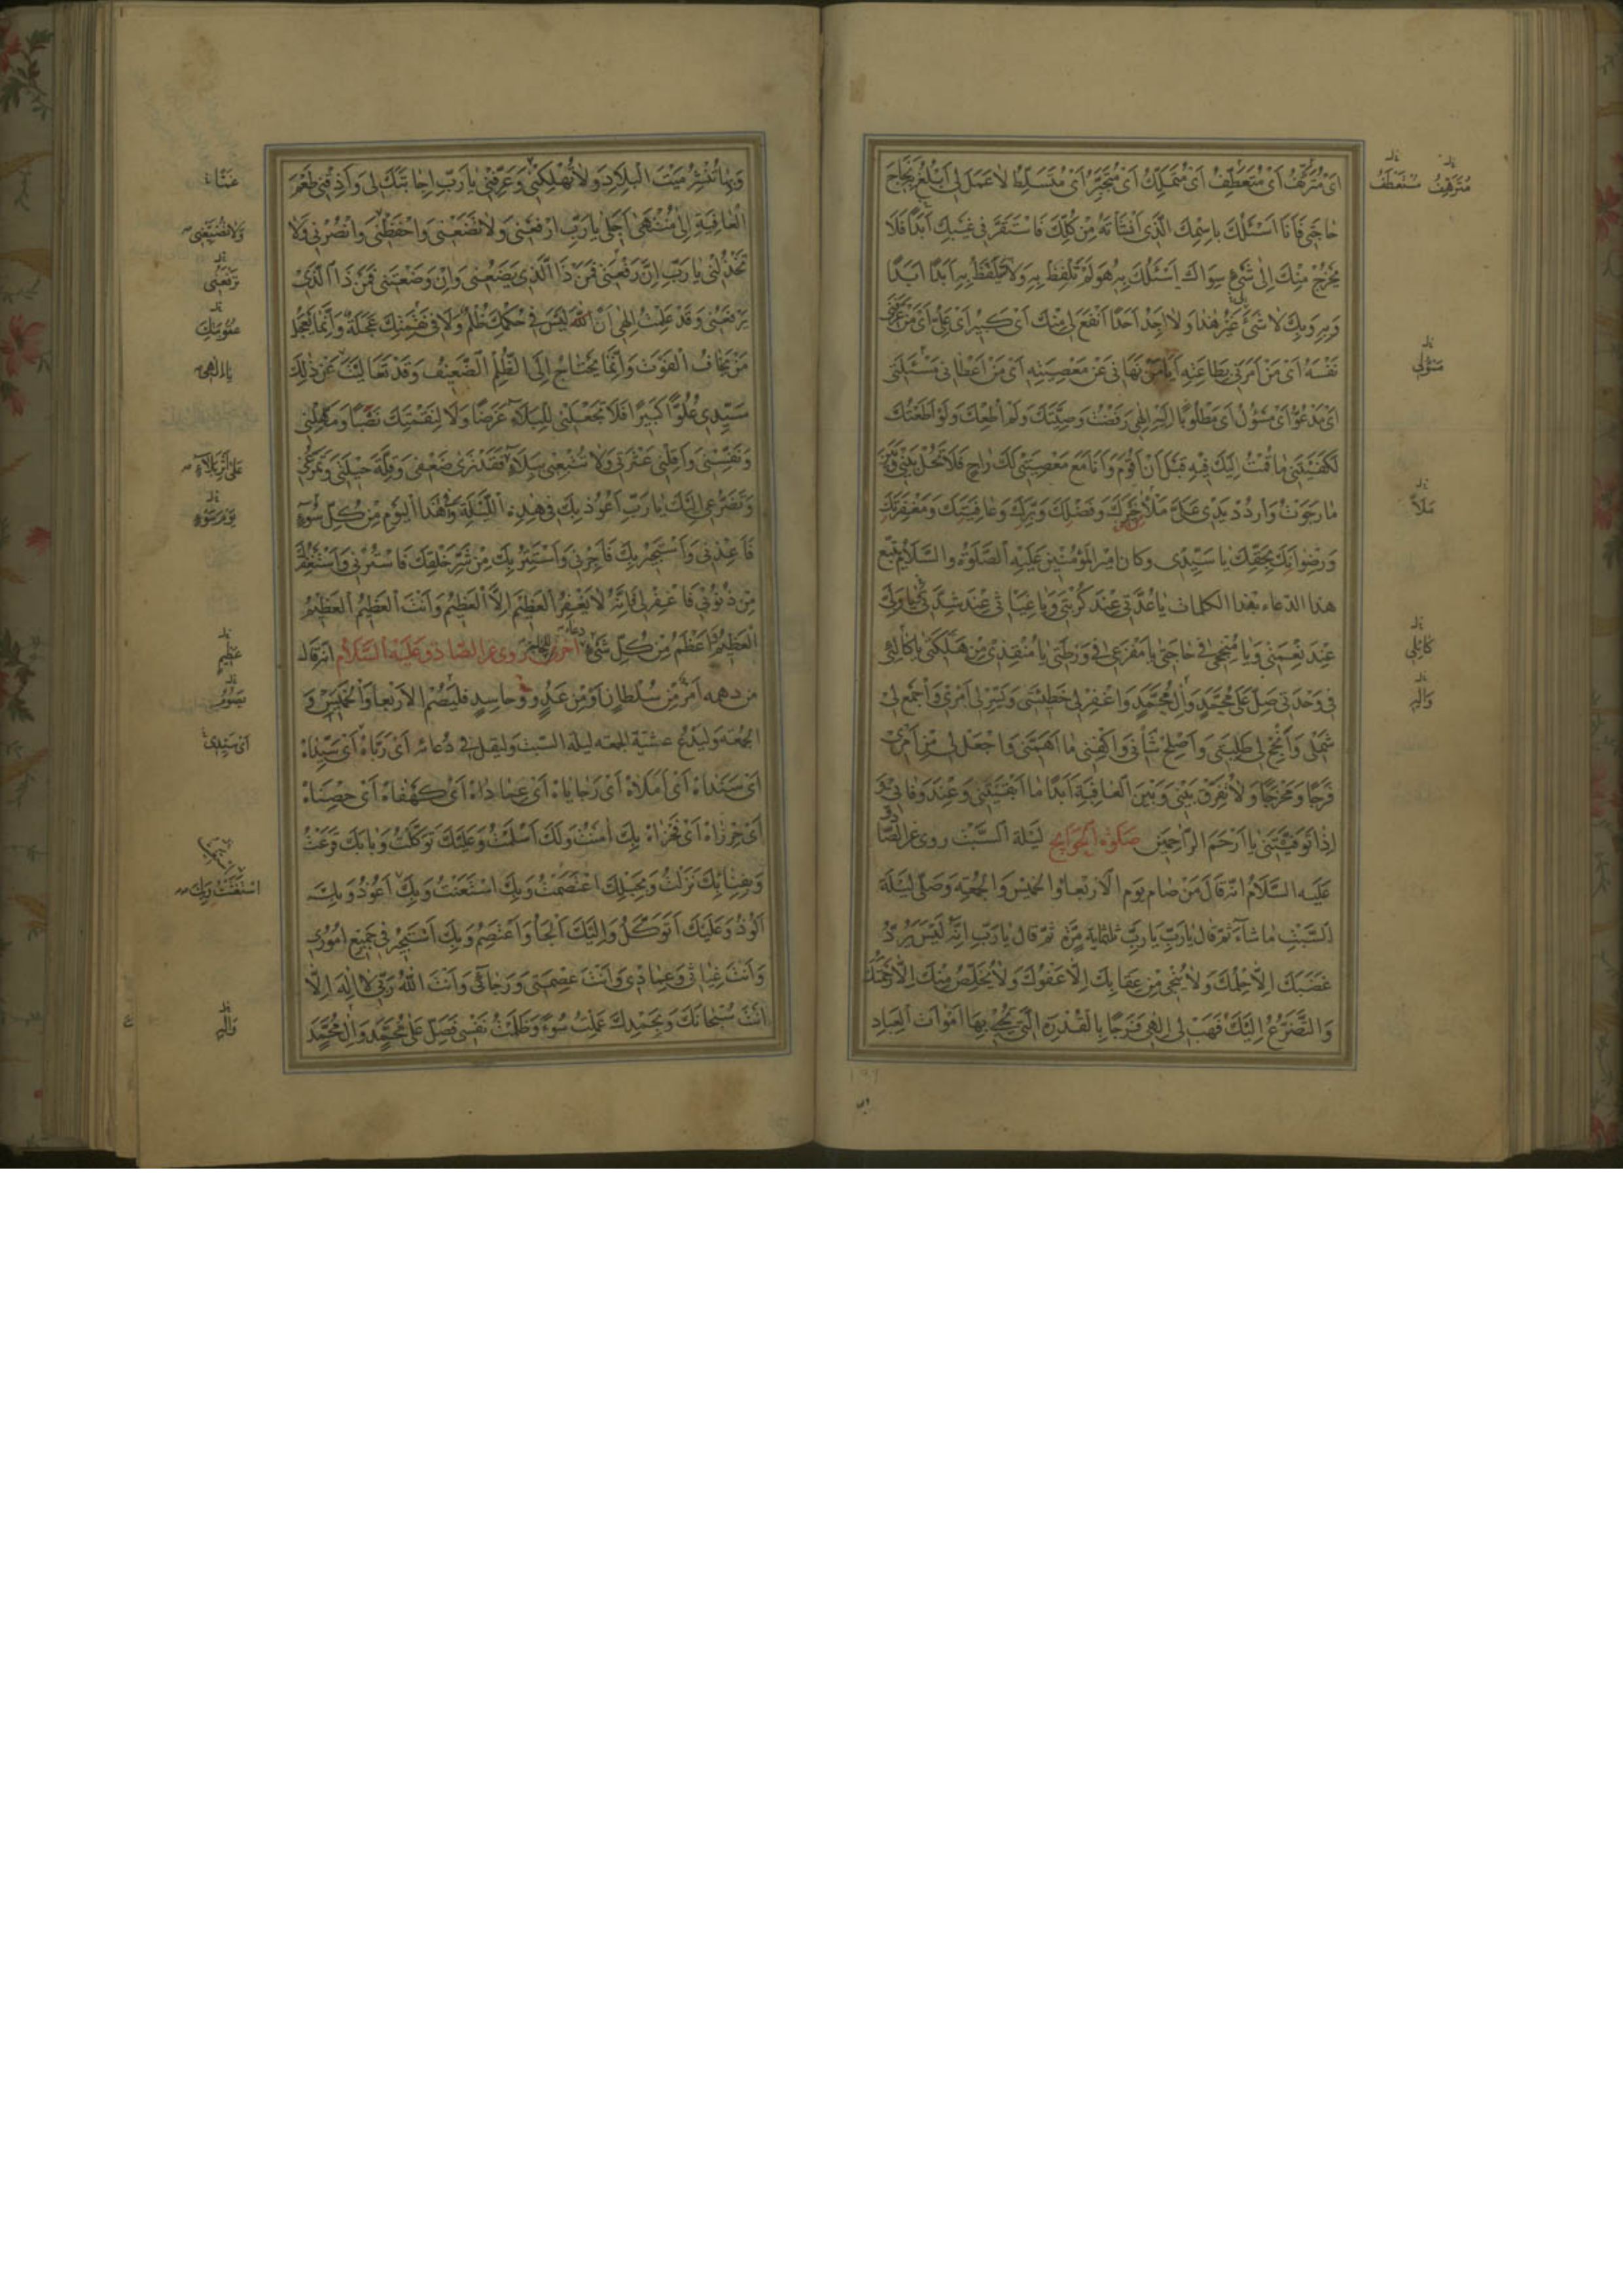 اَیْ مُتَرَئِّفُ اَیْ مُتَعَطِّفُ اَیْ مُتَمَلِّكُ اَیْ مُتَجَبِّرُ اَیْ مُتَسَلِّطُ لا عَمَلَ لی اَبْلُغُ بِهِ نَجاحَ
حاجَتی فَاَنَا اَسْئَلُكَ بِاسْمِكَ الَّذی اَنْشَاْتَهُ مِنْ كُلِّكَ فَاسْتَقَرَّ فی غَیْبِكَ اَبَدًا فَلا
یَخْرُجُ مِنْكَ اِلی شَیْءٍ سِواكَ اَسْئَلُكَ بِهِ هُوَ لَمْ تَلْفِظْ بِهِ وَلا تَلْفَظُ بِهِ اَبَدًا اَبَدًا
وَبِهِ وَبِكَ لا شَیْءَ غَیْرُ هذا وَلا اَجِدُ اَحَدًا اَنْفَعَ لی مِنْكَ اَیْ كَبیرُ اَیْ عَلِیُّ اَیْ مَنْ عَرَّفَنی
نَفْسَهُ اَیْ مَنْ اَمَرَنی بِطاعَتِهِ اَیا مَنْ نَهانی عَنْ مَعْصِیَتِهِ اَیْ مَنْ اَعْطانی مَسْئَلَتی
اَیْ مَدْعُوُّ اَیْ مَسْؤُلُ اَیْ مَطْلُوبًا اِلَیْهِ اِلهی رَفَضْتُ وَصِیَّتَكَ وَلَمْ اُطِعْكَ وَلَوْ اَطَعْتُكَ
لَكَفَیْتَنی ما قُمْتُ اِلَیْكَ فیهِ قَبْلَ اَنْ اَقُومَ وَاَنَا مَعَ مَعْصِیَتی لَكَ راجٍ فَلا تَحُلْ بَیْنی وَبَیْنَ
ما رَجَوْتُ وَارْدُدْ یَدَیَّ عَلَیَّ مَلْاءَ مِنْ خَیْرِكَ وَفَضْلِكَ وَبِرِّكَ وَعافِیَتِكَ وَمَغْفِرَتِكَ
وَرِضْوانِكَ بِحَقِّكَ یا سَیِّدی وكان امیر المؤمنین عَلَیْهِ الصَّلوةُ والسَّلامُ یتبع
هذا الدّعاء بهذا الكلمات یا عُدَّتی عِنْدَ كُرْبَتی وَیا غِیاثی عِنْدَ شِدَّتی وَیا وَلِیّی
عِنْدَ نِعْمَتی وَیا مُنْجِحی فی حاجَتی یا مَفْزَعی فی وَرْطَتی یا مُنْقِذی مِنْ هَلَكَتی یا كالِئی
فی وَحْدَتی صَلِّ عَلی مُحَمَّدٍ وَالِ مُحَمَّدٍ وَاغْفِرْ لی خَطیئَتی وَیَسِّرْ لی اَمْری وَاجْمَعْ لی
شَمْلی وَاَنْجِحْ لی طَلِبَتی وَاَصْلِحْ شَاْنی وَاكْفِنی ما اَهَمَّنی وَاجْعَلْ لی مِنْ اَمْری
فَرَجًا وَمَخْرَجًا وَلا تُفَرِّقْ بَیْنی وَبَیْنَ الْعافِیَةِ اَبَدًا ما اَبْقَیْتَنی وَعِنْدَ وَفاتی
اِذا تَوَفَّیْتَنی یا اَرْحَمَ الرّاحِمینَ صَلوة الحَوائِج لَیْلَة السَّبْت روی عن الصّادق
عَلَیْهِ السَّلامُ انّه قالَ مَنْ صام یوم الاربعا والخمیس والجمعة وَصَلّی لَیْلَة
السَّبْتِ ما شاءَ ثم قال یا رَبِّ یا رَبِّ ثلثمایة مرّة ثم قال یا رَبِّ اِنَّهُ لَیْسَ یَرُدُّ
غَضَبَكَ اِلّا حِلْمُكَ وَلا یُنْجی مِنْ عِقابِكَ اِلّا عَفْوُكَ وَلا یُخَلِّصُ مِنْكَ اِلّا رَحْمَتُكَ
وَالتَّضَرُّعُ اِلَیْكَ فَهَبْ لی اِلهی فَرَجًا بِالْقُدْرَةِ الَّتی تُحْیی بِها اَمْواتَ الْعِبادِ
مَسْؤُلی
مَلَأَ
كالِئی
وَالِهِ
وَبِها تَنْشُرُ مَیْتَ الْبِلادِ وَلا تُهْلِكْنی وَعَرِّفْنی یا رَبِّ اِجابَتَكَ لی وَاَذِقْنی طَعْمَ
الْعافِیَةِ اِلی مُنْتَهی اَجَلی یا رَبِّ ارْفَعْنی وَلا تَضَعْنی وَاحْفَظْنی وَانْصُرْنی وَلا
تَخْذُلْنی یا رَبِّ اِنْ رَفَعْتَنی فَمَنْ ذَا الَّذی یَضَعُنی وَاِنْ وَضَعْتَنی فَمَنْ ذَا الَّذی
یَرْفَعُنی وَقَدْ عَلِمْتُ اِلهی اَنَّ اللهَ لَیْسَ فی حُكْمِكَ ظُلْمٌ وَلا فی نَقِمَتِكَ عَجَلَةٌ وَاِنَّما یَعْجَلُ
مَنْ یَخافُ الْفَوْتَ وَاِنَّما یَحْتاجُ اِلَی الظُّلْمِ الضَّعیفُ وَقَدْ تَعالَیْتَ عَنْ ذلِكَ
سَیِّدی عُلُوًّا كَبیرًا فَلا تَجْعَلْنی لِلْبَلاءِ غَرَضًا وَلا لِنَقِمَتِكَ نَصَبًا وَمَهِّلْنی
وَنَفِّسْنی وَاَقِلْنی عَثْرَتی وَلا تُتْبِعْنی بِبَلاءٍ فَقَدْ تَری ضَعْفی وَقِلَّةَ حیلَتی وَتَمَرُّغی
وَتَضَرُّعی اِلَیْكَ یا رَبِّ اَعُوذُ بِكَ فی هذِهِ اللَّیْلَةِ وَهذَا الْیَوْمِ مِنْ كُلِّ سُوءٍ
فَاَعِذْنی وَاَسْتَجیرُ بِكَ فَاَجِرْنی وَاَسْتَتِرُ بِكَ مِنْ شَرِّ خَلْقِكَ فَاسْتُرْنی وَاَسْتَغْفِرُ
مِنْ ذُنُوبی فَاغْفِرْ لی فَاِنَّهُ لا یَغْفِرُ الْعَظیمَ اِلَّا الْعَظیمُ وَاَنْتَ الْعَظیمُ الْعَظیمُ
الْعَظیمُ اَعْظَمُ مِنْ كُلِّ شَیْءٍ دعاء آخر روی عن الصّادق عَلَیْهِ السَّلامُ انّه قال
من دهمه امر مِنْ سُلْطانٍ اَوْ مِنْ عَدُوٍّ وَحاسِدٍ فلیصُمْ الاربعا والخمیس وَ
الجمعة ولیدْعُ عشیّة الجمعه لیلة السّبت ولیقل فی دعائه اَیْ رَبّاهُ اَیْ سَیِّداهُ
اَیْ سَنَداهُ اَیْ اَمَلاهُ اَیْ رَجایاهُ اَیْ عِماداهُ اَیْ كَهْفاهُ اَیْ حِصْناهُ
اَیْ حِرْزاهُ اَیْ فَخْراهُ بِكَ امَنْتُ وَلَكَ اَسْلَمْتُ وَعَلَیْكَ تَوَكَّلْتُ وَبابَكَ قَرَعْتُ
وَبِفِنائِكَ نَزَلْتُ وَبِحَبْلِكَ اعْتَصَمْتُ وَبِكَ اسْتَعَنْتُ وَبِكَ اَعُوذُ وَبِكَ
اَلُوذُ وَعَلَیْكَ اَتَوَكَّلُ وَاِلَیْكَ اَلْجَأُ وَاَعْتَصِمُ وَبِكَ اَسْتَجیرُ فی جَمیعِ اُمُوری
وَاَنْتَ غِیاثی وَعِمادی وَاَنْتَ عِصْمَتی وَرَجائی وَاَنْتَ اللهُ رَبّی لا اِلهَ اِلّا
اَنْتَ سُبْحانَكَ وَبِحَمْدِكَ عَمِلْتُ سُوءً وَظَلَمْتُ نَفْسی فَصَلِّ عَلی مُحَمَّدٍ وَالِ مُحَمَّدٍ
تَرْفَعُنی
یا اِلهی
عَظیمٍ
اَیْ سَیِّدی
وَالِهِ